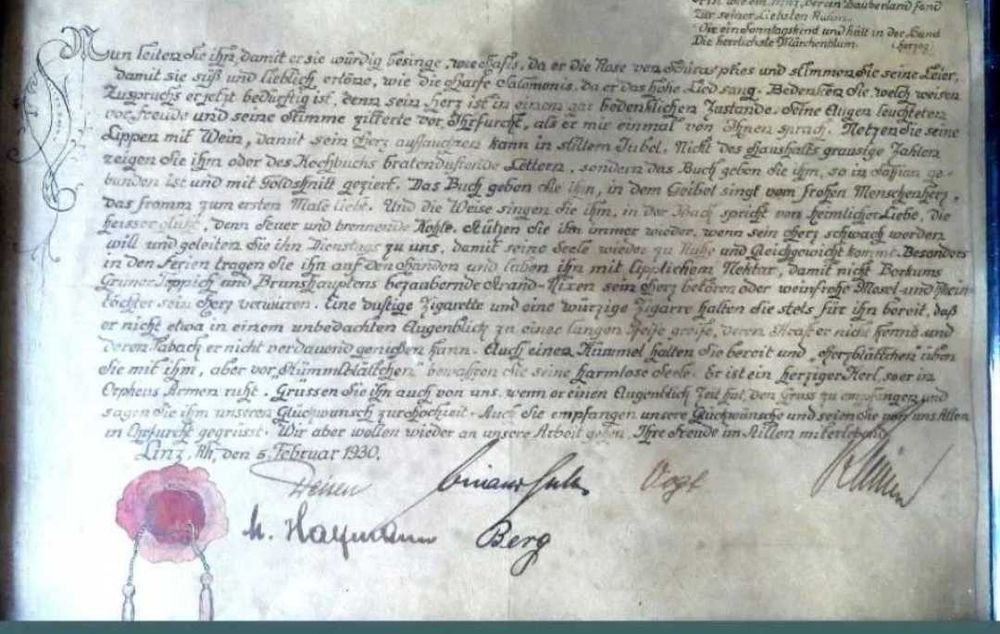 wie ein Prinz, der ein Zauberland fand
Zur seiner Liebsten
Wie ein Sonntagskind und hält in der Hand
Die herrlichste Märchenblum. (Herzog)
Nun leiten Sie ihn, damit er sie würdig besinge, wie Hafis, da er die Rose von Schiras pries und stimmen Sie seine Leier,
damit sie süß und lieblich ertöne, wie die Harfe Salomonis, da er das hohe Lied sang. Bedenken Sie, welch weisen
Zuspruchs er jetzt bedürftig ist, denn sein Herz ist in einem gar bedenklichen Zustande. Seine Augen leuchteten
vor Freude und seine Stimme zitterte vor Ehrfurcht, als er mir einmal von Ihnen sprach. Netzen Sie seine
Lippen mit Wein, damit sein Herz aufjauchzen kann in stillem Jubel. Nicht des Haushalts grausige Zahlen
zeigen Sie ihm oder des Kochbuchs bratenduftende Lettern, sondern das Buch geben Sie ihm, so in Saffian ge-
bunden ist und mit Goldschnitt geziert. Das Buch geben Sie ihm, in dem Geibel singt vom frohen Menschenherz,
das fromm zum ersten Male liebt. Und die Weise singen Sie ihm, in der Bach spricht von heimlicher Liebe, die
heisser glüht, denn Feuer und brennende Kohle. Stützen Sie ihn immer wieder, wenn sein Herz schwach werden
will und geleiten Sie ihn Dienstags zu uns, damit seine Seele wieder zu Ruhe und Gleichgewicht kommt. Besonders
in den Ferien tragen Sie ihn auf den Händen und laben ihn mit lipplichem Nektar, damit nicht Borkums
Grüner Teppich und Brunshauptens bezaubernde Strand-Nixen sein Herz betören oder weinfrohe Mosel- und Rhein-
töchter sein Herz verwirren. Eine duftige Zigarette und eine würzige Zigarre halten Sie stets für ihn bereit, daß
er nicht etwa in einem unbedachten Augenblick zu einer langen Pfeife greife, deren Kraft er nicht kennt und
deren Taback er nicht verdauend genießen kann. Auch einen Kümmel halten Sie bereit und „Herzblättchen“ üben
Sie mit ihm, aber vor „Kümmelblättchen“ bewahren Sie seine harmlose Seele. Er ist ein herziger Kerl, so er in
Orpheus Armen ruht. Grüssen Sie ihn auch von uns, wenn er einen Augenblick Zeit hat, den Gruss zu empfangen und
sagen Sie ihm unseren Glückwunsch zur Hochzeit. Auch Sie empfangen unsere Glückwünsche und seien Sie von uns Allen
in Ehrfurcht gegrüsst. Wir aber wollen wieder an unsere Arbeit gehen, Ihre Freude im Stillen miterlebend.
Linz, Rh, den 5. Februar 1930.
Vogt
M. Haymann Berg